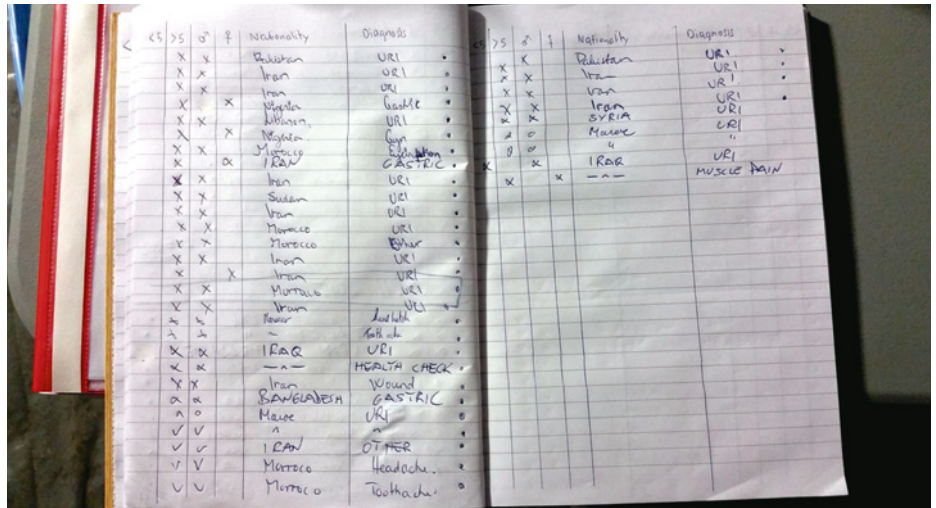 <5 >5 ♂ ♀ Nationality Diagnosis
x x Pakistan URI
x x Iran URI
x x Iran URI
x x Nigeria Gastric
x x Libanon URI
x x Nigeria Gyn
x x Morocco
x x IRAN GASTRIC
x x Iran URI
x x Sudan URI
x x Iran URI
x x Morocco URI
x x Morocco Other
x x Iran URI
x x Iran URI
x x Morroco URI
x x Iran URI
x x Maroc
x x ~ Toothache
x x IRAQ URI
x x —"— HEALTH CHECK
x x Iran Wound
x x BANGLADESH GASTRIC
Maroc URI
v v " "
v v IRAN OTHER
v v Morroco Headache.
v v Morroco Toothache.
<5 >5 ♂ ♀ Nationality Diagnosis
x Pakistan URI
x x Iran URI
x x Iran URI
x x Iran URI
x x SYRIA URI
Maroc URI
" "
x x IRAQ URI
x x —"— MUSCLE PAIN